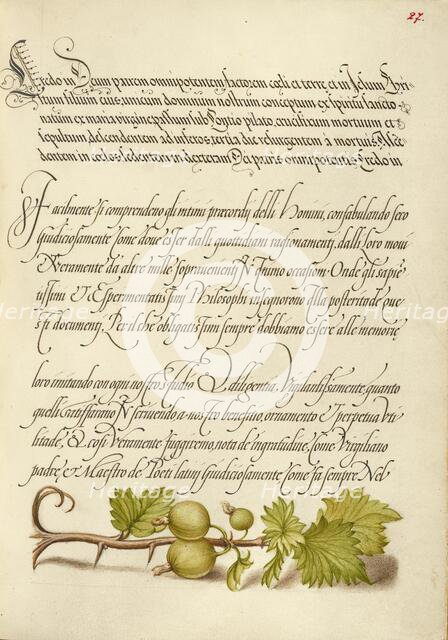 27.
Credo in Deum patrem omnipotentem factorem coeli et terre et in Jesum Cri
stum filium eius unicum dominum nostrum conceptum ex spiritu sancto
natum ex maria virgine passum sub Pontio pilato, crucifixum mortuum et
sepultum descendentem ad inferos, tertia die resurgentem à mortuis, Asce
dentem in celos sedentem in dexteram Dei patris omnipotentis Credo in
Facilmente si comprendeno gli intimi precordij delli Homini, confabulando seco
Giudiciosamente Come dove esser dalli quottidiani ragionamenti, dalli loro motti
O Veramente da altre mille sopravenenti Occasioni Onde gli sapie
tissimi Et Esperimentatissimi Philosophi insegnorono alla posteritade que
sti documenti, Per il che obligatissimi sempre dobbiamo essere alle memorie
loro imitando con ogni nostro studio E diligentia, Vigilantissimamente quanto
quelli scrivendo a nostro beneficio, ornamento Et perpetua Uti
litade, Et cosi Veramente fuggiremo, nota de ingratitudine, Come Virgiliano
padre, et Maestro de Poeti latini Giudiciosamente Come fa sempre Nel
Heritage Images